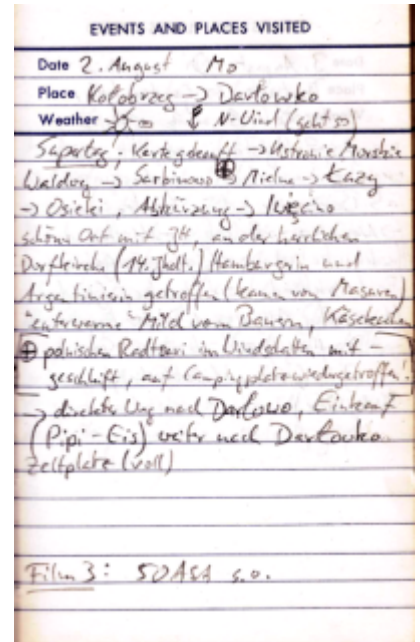 EVENTS AND PLACES VISITED
Date 2. August Mo
Place Kołobrzeg -> Darłowko
Weather N-Wind (geht so)
Supertag! Karte gekauft -> Ustronie Morskie
Waldweg -> Sarbinowo ⊕ Mielno -> Łazy
-> Osieki, Abkürzung -> Iwięcino
schöner Ort mit JH, an der herrlichen
Dorfkirche (14. Jhdt.) Hamburgerin und
Argentinierin getroffen (kamen von Masuren)
"euterwarme" Milch vom Bauern, Käsekuchen
⊕ polnischen Radtouri im Windschatten mit-
geschleift, auf Campingplatz wiedergetroffen!
-> direkter Weg nach Darłowo, Einkauf
(Pipi-Eis) weiter nach Darłowko
Zeltplatz (voll)
Film 3: 50ASA s.o.